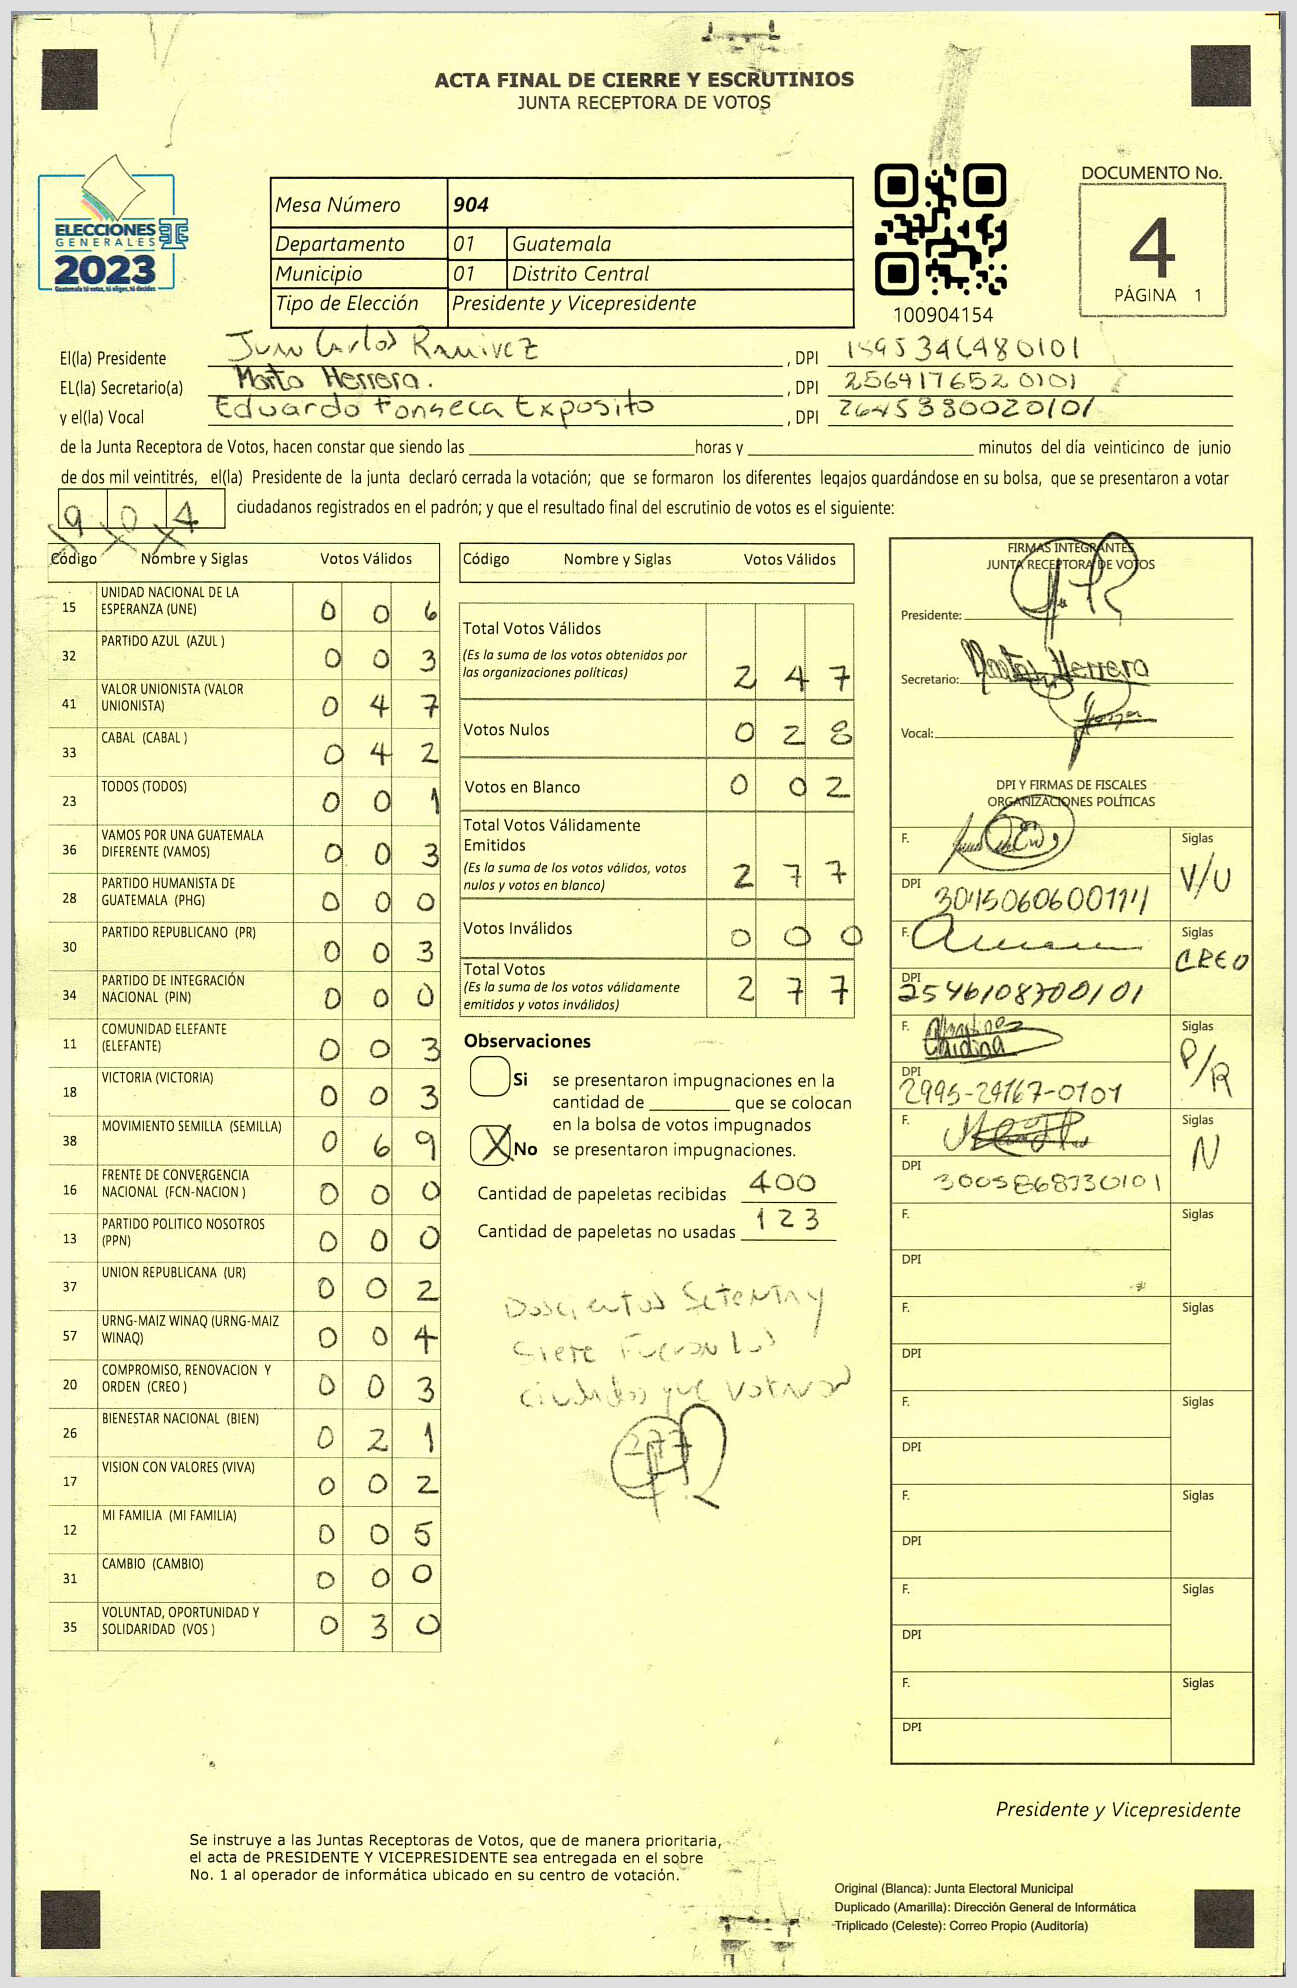 ACTA FINAL DE CIERRE Y ESCRUTINIOS
JUNTA RECEPTORA DE VOTOS
ELECCIONES
GENERALES
2023
Guatemala tú votas, tú eliges, tú decides
Mesa Número 904
Departamento 01 Guatemala
Municipio 01 Distrito Central
Tipo de Elección Presidente y Vicepresidente
100904154
DOCUMENTO No.
4
PÁGINA 1
El(la) Presidente Juan Carlos Ramirez , DPI
EL(la) Secretario(a) Marta Herrera. , DPI 2564176520101
y el(la) Vocal Eduardo Fonseca Exposito , DPI 2645380020101
de la Junta Receptora de Votos, hacen constar que siendo las horas y minutos del día veinticinco de junio
de dos mil veintitrés, el(la) Presidente de la junta declaró cerrada la votación; que se formaron los diferentes legajos guardándose en su bolsa, que se presentaron a votar
9 0 4 ciudadanos registrados en el padrón; y que el resultado final del escrutinio de votos es el siguiente:
Código Nombre y Siglas Votos Válidos
15 UNIDAD NACIONAL DE LA
ESPERANZA (UNE) 0 0 6
32 PARTIDO AZUL (AZUL ) 0 0 3
41 VALOR UNIONISTA (VALOR
UNIONISTA) 0 4 7
33 CABAL (CABAL ) 0 4 2
23 TODOS (TODOS) 0 0 1
36 VAMOS POR UNA GUATEMALA
DIFERENTE (VAMOS) 0 0 3
28 PARTIDO HUMANISTA DE
GUATEMALA (PHG) 0 0 0
30 PARTIDO REPUBLICANO (PR) 0 0 3
34 PARTIDO DE INTEGRACIÓN
NACIONAL (PIN) 0 0 0
11 COMUNIDAD ELEFANTE
(ELEFANTE) 0 0 3
18 VICTORIA (VICTORIA) 0 0 3
38 MOVIMIENTO SEMILLA (SEMILLA) 0 6 9
16 FRENTE DE CONVERGENCIA
NACIONAL (FCN-NACION ) 0 0 0
13 PARTIDO POLITICO NOSOTROS
(PPN) 0 0 0
37 UNION REPUBLICANA (UR) 0 0 2
57 URNG-MAIZ WINAQ (URNG-MAIZ
WINAQ) 0 0 4
20 COMPROMISO, RENOVACION Y
ORDEN (CREO ) 0 0 3
26 BIENESTAR NACIONAL (BIEN) 0 2 1
17 VISION CON VALORES (VIVA) 0 0 2
12 MI FAMILIA (MI FAMILIA) 0 0 5
31 CAMBIO (CAMBIO) 0 0 0
35 VOLUNTAD, OPORTUNIDAD Y
SOLIDARIDAD (VOS ) 0 3 0
Código Nombre y Siglas Votos Válidos
Total Votos Válidos
(Es la suma de los votos obtenidos por
las organizaciones políticas) 2 4 7
Votos Nulos 0 2 8
Votos en Blanco 0 0 2
Total Votos Válidamente
Emitidos
(Es la suma de los votos válidos, votos
nulos y votos en blanco) 2 7 7
Votos Inválidos 0 0 0
Total Votos
(Es la suma de los votos válidamente
emitidos y votos inválidos) 2 7 7
Observaciones
Si se presentaron impugnaciones en la
cantidad de que se colocan
en la bolsa de votos impugnados
X No se presentaron impugnaciones.
Cantidad de papeletas recibidas 400
Cantidad de papeletas no usadas 123
Doscientos Setenta y
Siete Fueron los
que votaron
277
FIRMAS INTEGRANTES
JUNTA RECEPTORA DE VOTOS
Presidente:
Secretario: Marta Herrera
Vocal:
DPI Y FIRMAS DE FISCALES
ORGANIZACIONES POLÍTICAS
F. Siglas
V/U
DPI
F. Siglas
CREO
DPI 2546108700101
F. Siglas
P/R
DPI
2995-29167-0101
F. Siglas
N
DPI
3005868730101
F. Siglas
DPI
F. Siglas
DPI
F. Siglas
DPI
F. Siglas
DPI
F. Siglas
DPI
F. Siglas
DPI
Presidente y Vicepresidente
Se instruye a las Juntas Receptoras de Votos, que de manera prioritaria,
el acta de PRESIDENTE Y VICEPRESIDENTE sea entregada en el sobre
No. 1 al operador de informática ubicado en su centro de votación.
Original (Blanca): Junta Electoral Municipal
Duplicado (Amarilla): Dirección General de Informática
Triplicado (Celeste): Correo Propio (Auditoría)